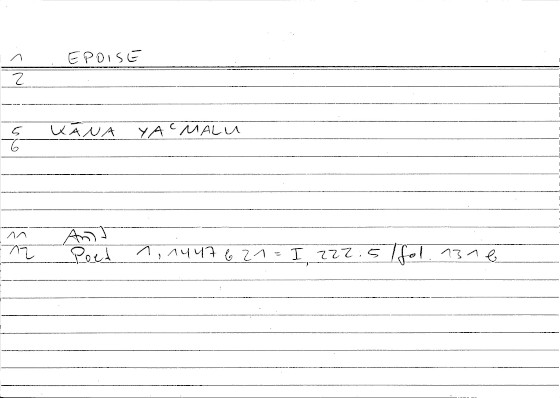 1 EPOISE
2
5 KĀNA YAʿMALU
6
11 Arist
12 Poet 1, 1447 b 21 = I, 222.5 / fol. 131 b